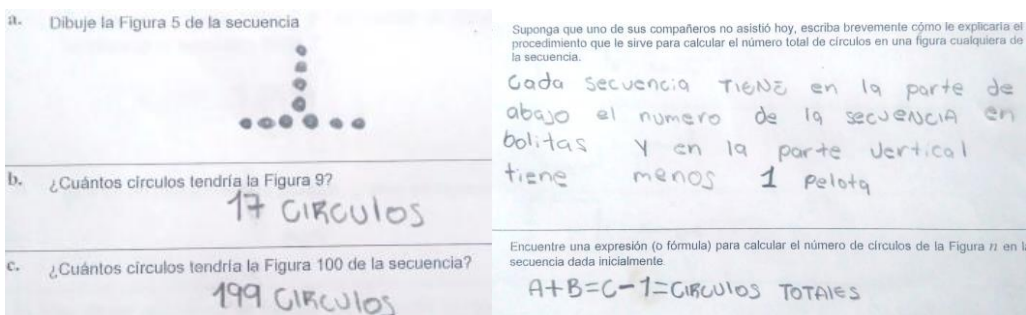 a. Dibuje la Figura 5 de la secuencia
b. ¿Cuántos círculos tendría la Figura 9?
17 CIRCUlOS
c. ¿Cuántos círculos tendría la Figura 100 de la secuencia?
199 CIRCUlOS
Suponga que uno de sus compañeros no asistió hoy, escriba brevemente cómo le explicaría el
procedimiento que le sirve para calcular el número total de círculos en una figura cualquiera de
la secuencia.
Cada secuencia TIENE en la parte de
abajo el numero de la secuencia en
bolitas y en la parte vertical
tiene menos 1 pelota
Encuentre una expresión (o fórmula) para calcular el número de círculos de la Figura n en
secuencia dada inicialmente
A+B=C-1=CIRCUlOS TOTAlES